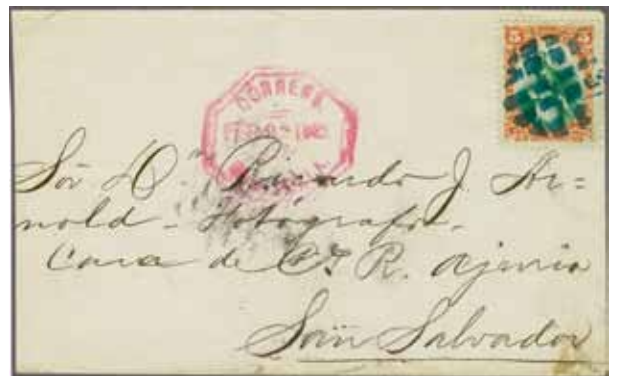 5 5
CORREOS
Sor Dn Ricardo J. Ar=
nold - Fotógrafo -
Casa de
R. Ajuria
San Salvador